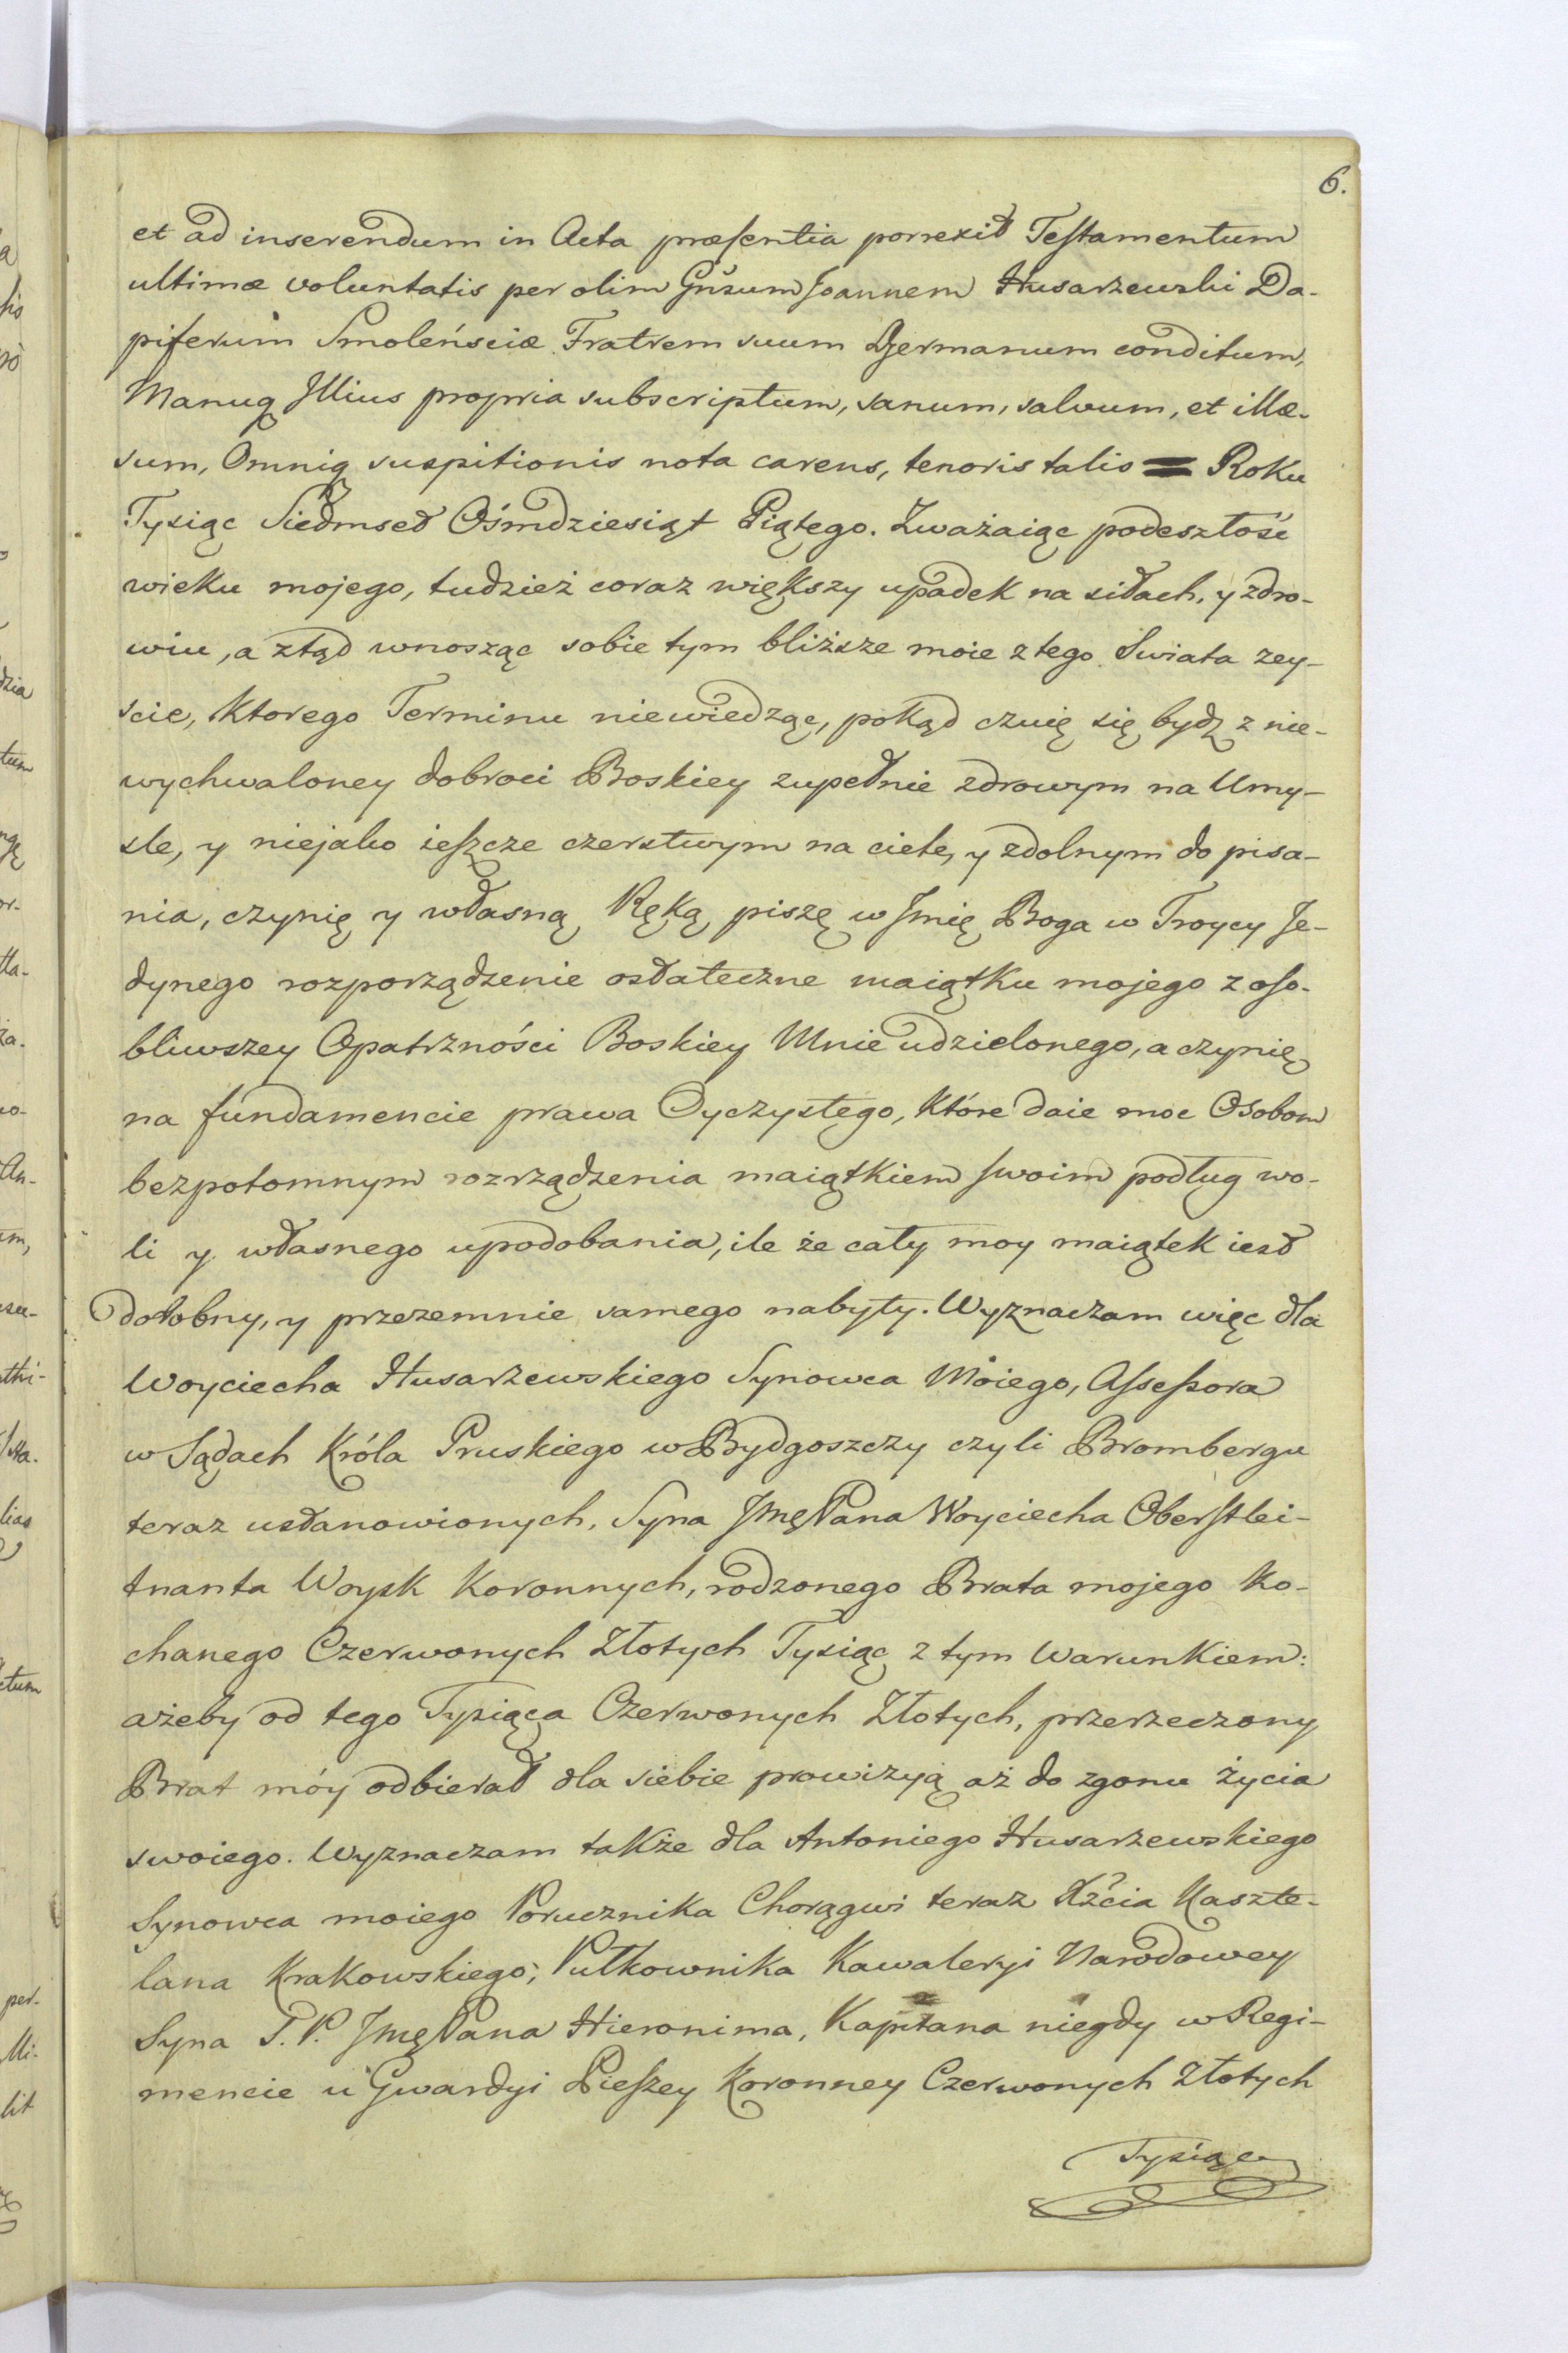 6.
et ad inserendum in Acta præsentia porrexit Testamentum
ultimæ voluntatis per olim Gnsum Joannem Husarzewski Da-
piferum Smolensciæ Fratrem suum Germanum conditum,
Manuq Illius propria subscriptum, sanum, salvum, et illæ-
sum, Omniq suspitionis nota carens, tenoris talis = Roku
Tysiąc Siedmset Ośmdziesiąt Piątego. Zważaiąc podeszłość
wieku mojego, tudzież coraz większy upadek na siłach, y zdro-
wiu, a ztąd wnosząc sobie tym bliższe moie z tego Swiata zey-
scie, ktorego Terminu niewiedząc, pokąd czuię się bydź z nie-
wychwaloney dobroci Boskiey zupełnie zdrowym na Umy-
sle, y niejako ieszcze czerstwym na ciele, y zdolnym do pisa-
nia, czynię y własną Ręką piszę w Jmię Boga w Troycy Je-
dynego rozporządzenie ostateczne maiątku mojego z oso-
bliwszey Opatrzności Boskiey Mnie udzielonego, a czynię
na fundamencie prawa Oyczystego, które daie moc Osobom
bezpotomnym rozrządzenia maiątkiem swoim podług wo-
li y własnego upodobania, ile że cały moy maiątek iest
dorobny, y przezemnie samego nabyty. Wyznaczam więc dla
Woyciecha Husarzewskiego Synowca Moiego, Assessora
w Sądach Króla Pruskiego w Bydgoszczy czyli Brombergu
teraz ustanowionych, Syna JmęPana Woyciecha Oberstlei-
tnanta Woysk Koronnych, rodzonego Brata mojego ko-
chanego Czerwonych Złotych Tysiąc z tym Warunkiem:
ażeby od tego Tysiąca Czerwonych Złotych, przerzeczony
Brat móy odbierał dla siebie prowizyą aż do zgonu życia
swoiego. Wyznaczam także dla Antoniego Husarzewskiego
Synowca moiego Porucznika Chorągwi teraz Xżcia Kaszte-
lana Krakowskiego, Pułkownika Kawaleryi Narodowey
Syna Ś.P. JmęPana Hieronima, Kapitana niegdy w Regi-
mencie u Gwardyi Pieszey Koronney Czerwonych Złotych
Tysiąc